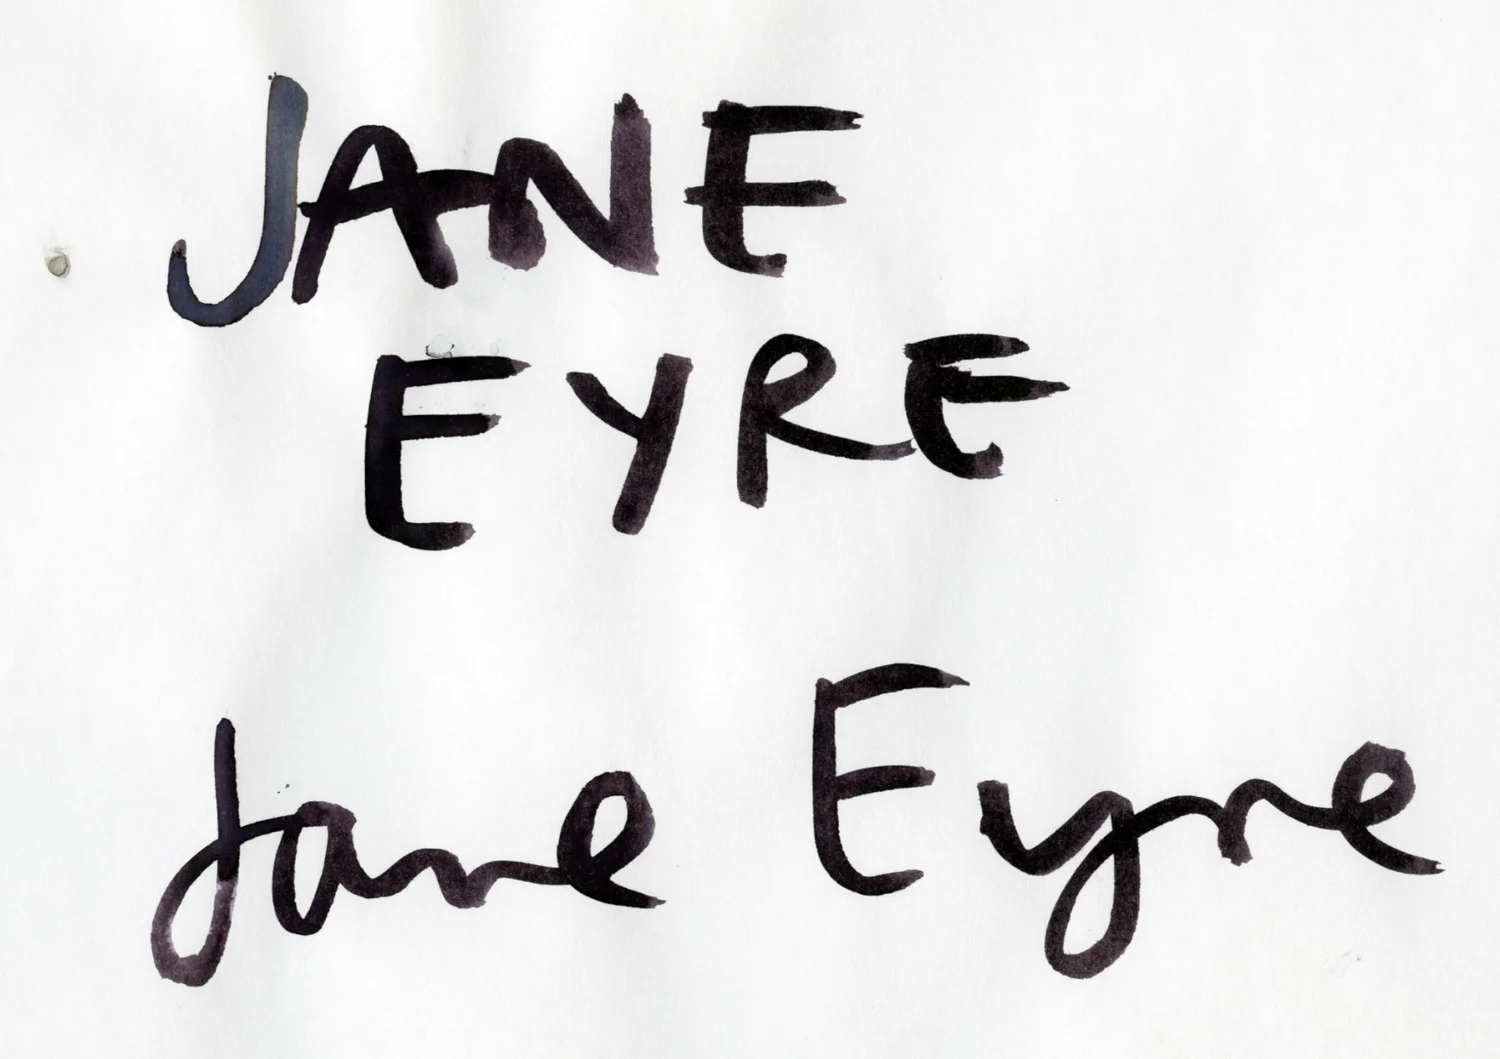 JANE
EYRE
Jane Eyre